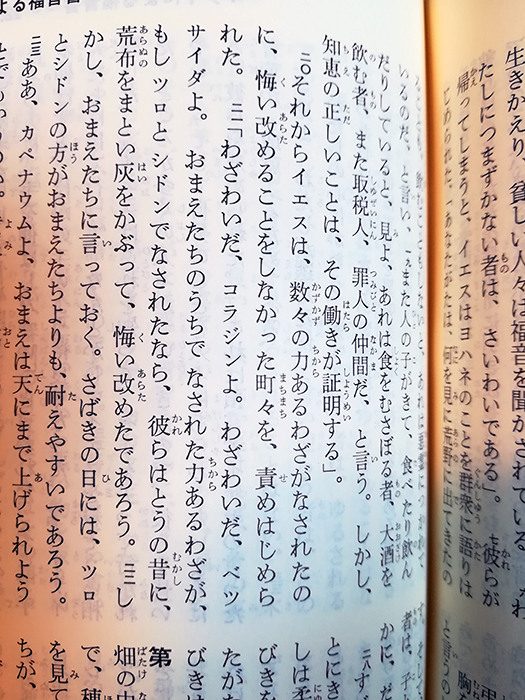 生きかえり、貧しい人々は福音を聞かされている。
たしにつまずかない者は、さいわいである」。七彼らが
帰ってしまうと、イエスはヨハネのことを群衆に語りは
じめられた、「あなたがたは、何を見に荒野に出てきたの
よる福音
いるのだ、と言い、一九また人の子がきて、食べたり飲ん
だりしていると、見よ、あれは食をむさぼる者、大酒を
飲む者、また取税人、罪人の仲間だ、と言う。しかし、
知恵の正しいことは、その働きが証明する」。
二〇それからイエスは、数々の力あるわざがなされたの
に、悔い改めることをしなかった町々を、責めはじめら
れた。二一「わざわいだ、コラジンよ。わざわいだ、ベツ
サイダよ。おまえたちのうちでなされた力あるわざが、
もしツロとシドンでなされたなら、彼らはとうの昔に、
荒布をまとい灰をかぶって、悔い改めたであろう。二二し
かし、おまえたちに言っておく。さばきの日には、ツロ
とシドンの方がおまえたちよりも、耐えやすいであろう。
二三ああ、カペナウムよ、おまえは天にまで上げられよう
者は、
かに、
二八す
とにき
しは柔
びきを
たがた
びきは
第
畑の中
で、穂
を見て
ちが、